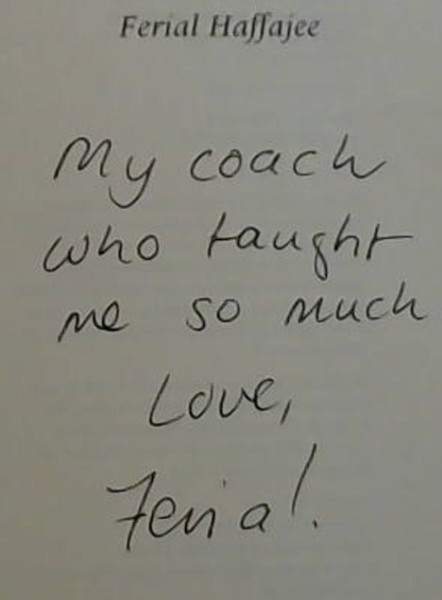 Ferial Haffajee
My coach
who taught
me so much
Love,
Ferial.